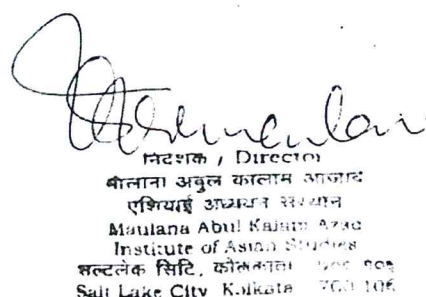 निदेशक / Director
मौलाना अबुल कालाम आजाद
एशियाई अध्ययन संस्थान
Maulana Abul Kalam Azad
Institute of Asian Studies
सल्टलेक सिटि, कोलकाता
Salt Lake City Kolkata 700 106